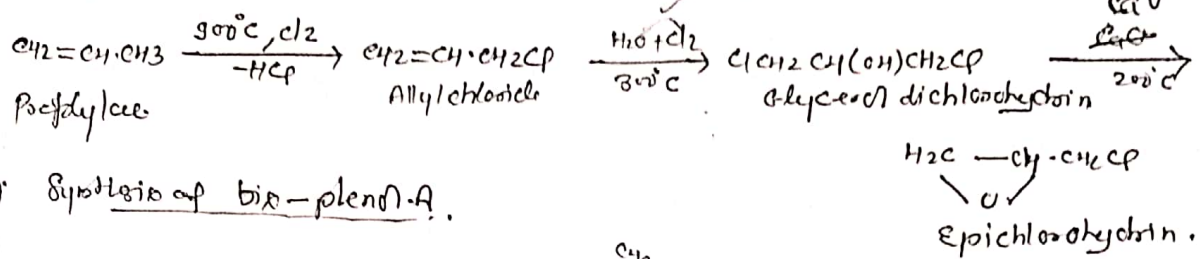 CH2=CH·CH3 900°C, Cl2 -HCl CH2=CH·CH2Cl H2O+Cl2 300°C ClCH2CH(OH)CH2Cl 200°C
Allylchloride Glycerol dichlorohydrin
H2C — CH·CH2Cl
O
Epichlorohydrin.
Synthesis of bis-phenol·A.